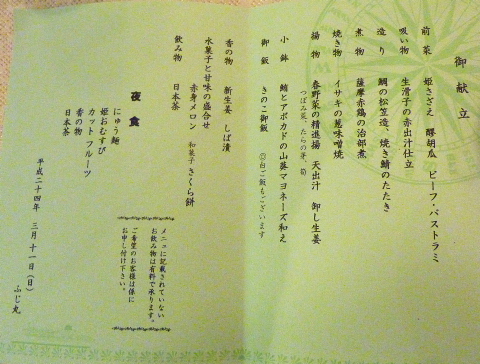 御献立
前菜　姫さざえ　醪胡瓜　ビーフ・パストラミ
吸い物　生滑子の赤出汁仕立
造り　鯛の松笠造、焼き鯖のたたき
煮物　薩摩赤鶏の治部煮
焼き物　イサキの葱味噌焼
揚物　春野菜の精進揚　天出汁　卸し生姜
つぼみ菜、たらの芽、筍
小鉢　鮪とアボカドの山葵マヨネーズ和え
御飯　きのこ御飯　◎白ご飯もございます
香の物　新生姜　しば漬
水菓子と甘味の盛合せ
赤身メロン　和菓子　さくら餅
飲み物　日本茶
夜食
にゅう麺
姫おむすび
カットフルーツ
香の物
日本茶
メニューに記載されていない
お飲み物は有料で承ります。
ご希望のお客様は係に
お申し付け下さい。
平成二十四年　三月十一日（日）
ふじ丸